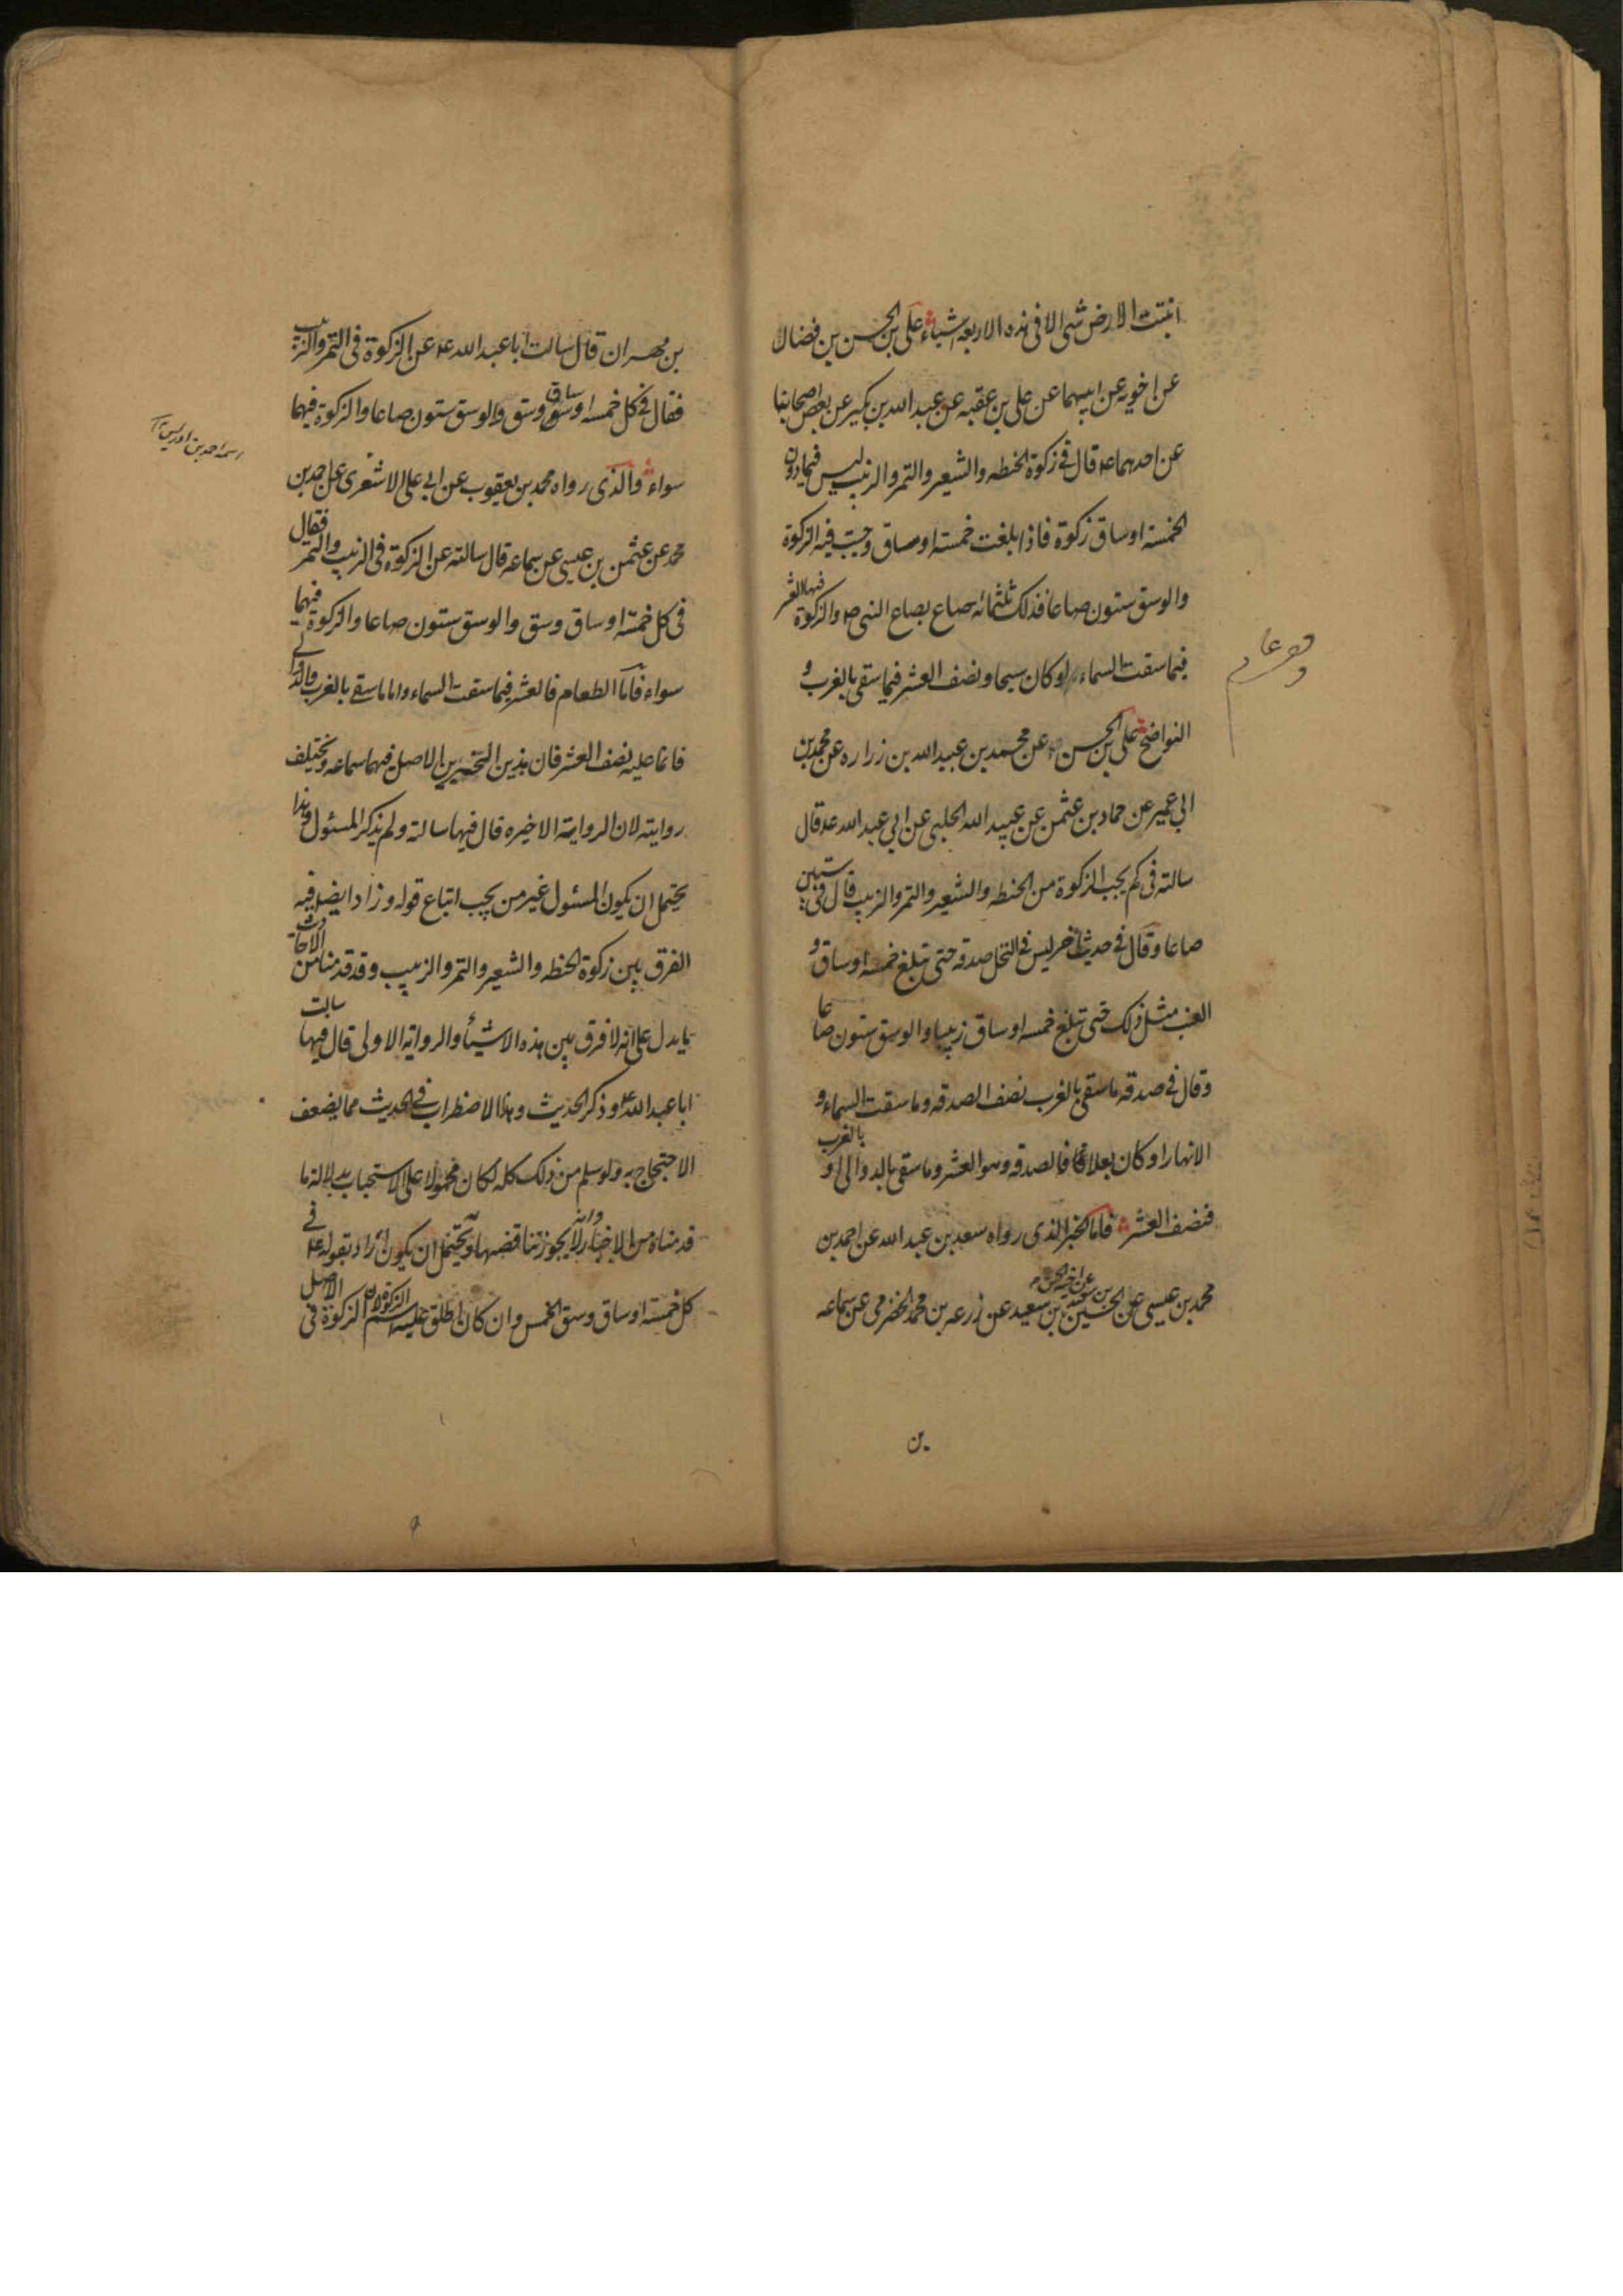 انبتت الارض شئ الا فى هذه الاربعه اشياء على بن الحسن بن فضال
عن اخويه عن ابيهما عن على بن عقبه عن عبد الله بن بكير عن بعض اصحابنا
عن احدهما ع قال فى زكوة الحنطه والشعير والتمر والزبيب ليس فيما دون
الخمسة اوساق زكوة فاذا بلغت خمسة اوساق وجبت فيه الزكوة
والوسق ستون صاعا فذلك ثلثمائه صاع بصاع النبى ص والزكوة فيها العشر
فيما سقت السماء او كان سيحا ونصف العشر فيما سقى بالغرب و
النواضح على بن الحسن عن محمد بن عبيد الله بن زراره عن محمد بن
ابى عمير عن حماد بن عثمن عن عبيد الله الحلبى عن ابى عبد الله ع قال
سالته فى كم يجب الزكوة من الحنطه والشعير والتمر والزبيب قال فى ستين
صاعا وقال فى حديث اخر ليس فى النخل صدقه حتى تبلغ خمسه اوساق و
العنب مثل ذلك حتى تبلغ خمسه اوساق زبيبا والوسق ستون صاعا
وقال فى صدقه ما سقى بالغرب نصف الصدقه وما سقت السماء و
الانهار او كان بعلا فالصدقه وهو العشر وما سقى بالدوالى او بالغرب
فنصف العشر فاما الخبر الذى رواه سعد بن عبد الله عن احمد بن
محمد بن عيسى عن الحسين بن سعيد عن اخيه الحسن بن سعيد عن زرعه بن محمد الحضرمى عن سماعه
بن مهران قال سالت ابا عبد الله ع عن الزكوة فى التمر والزبيب
فقال فى كل خمسه اوساق وسق والوسق ستون صاعا والزكوة فيهما
سواء والذى رواه محمد بن يعقوب عن ابى على الاشعرى عن احمد بن
اسمه احمد بن ادريس
محمد عن عثمن بن عيسى عن سماعه قال سالته عن الزكوة فى الزبيب والتمر فقال
فى كل خمسة اوساق وسق والوسق ستون صاعا والزكوة فيهما
سواء فاما الطعام فالعشر فيما سقت السماء واما ما سقى بالغرب والدوالى
فانما عليه نصف العشر فان هذين الخبرين الاصل فيهما سماعه وتختلف
روايته لان الرواية الاخيره قال فيها سالته ولم يذكر المسئول وهذا
يحتمل ان يكون المسئول غير من يجب اتباع قوله وزاد ايضا فيه
الفرق بين زكوة الحنطه والشعير والتمر والزبيب وقد قدمنا من الاحاديث
ما يدل على انه لا فرق بين هذه الاشياء والرواية الاولى قال فيها سالت
ابا عبد الله ع وذكر الحديث وهذا الاضطراب فى الحديث مما يضعف
الاحتجاج به ولو سلم من ذلك كله لكان محمولا على الاستحباب بدلالة ما
قدمناه من الاخبار وانه لا يجوز تناقضها ويحتمل ان يكون اراد بقوله ع فى
كل خمسة اوساق وسق الخمس وان كان اطلق عليه اسم الزكوة لان الزكوة فى الاصل